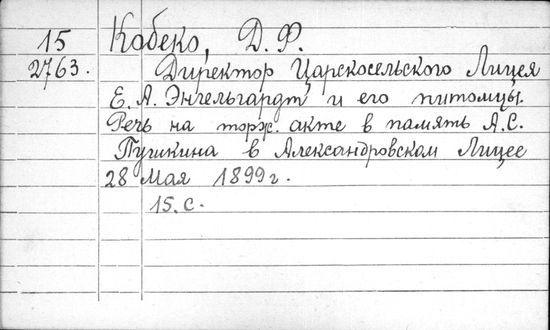 15 Кобеко, Д. Ф.
2763. Директор Царскосельского Лицея
Е. А. Энгельгардт и его питомцы.
Речь на торж. акте в память А.С.
Пушкина в Александровском Лицее
28 Мая 1899 г.
15. с.